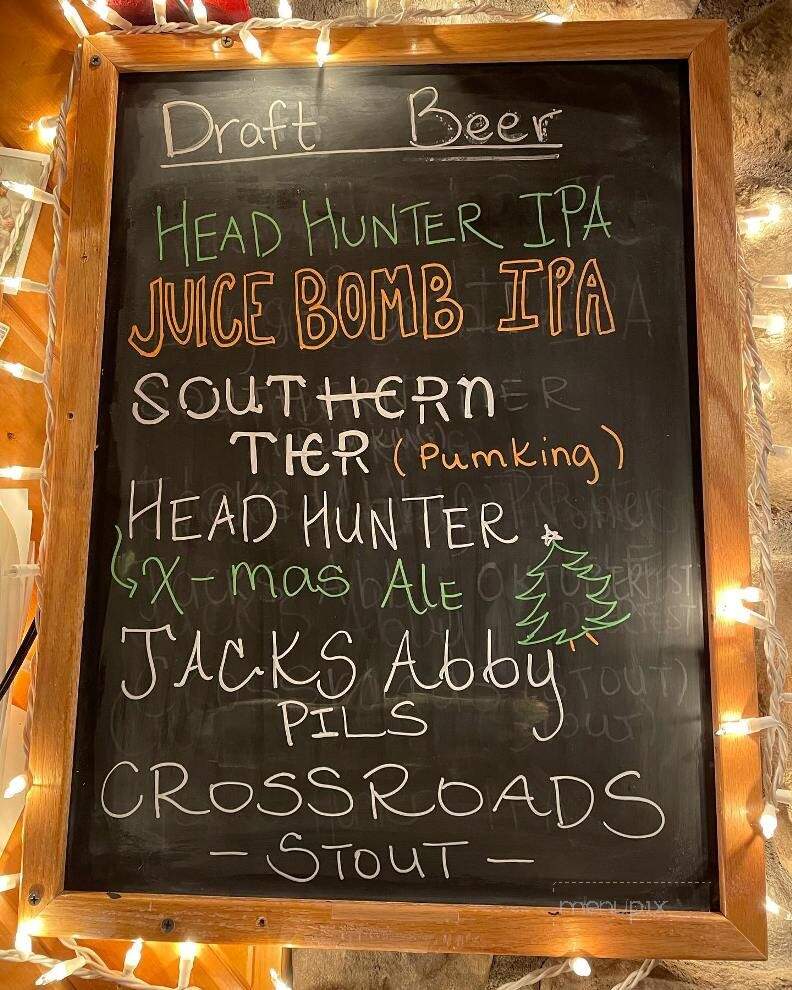 Draft Beer
HEAD HUNTER IPA
JUICE BOMB IPA
SOUTHERN
TIER (Pumking)
HEAD HUNTER
X-mas Ale
JACKS Abby
PILS
CROSSROADS
- STOUT -
menupix